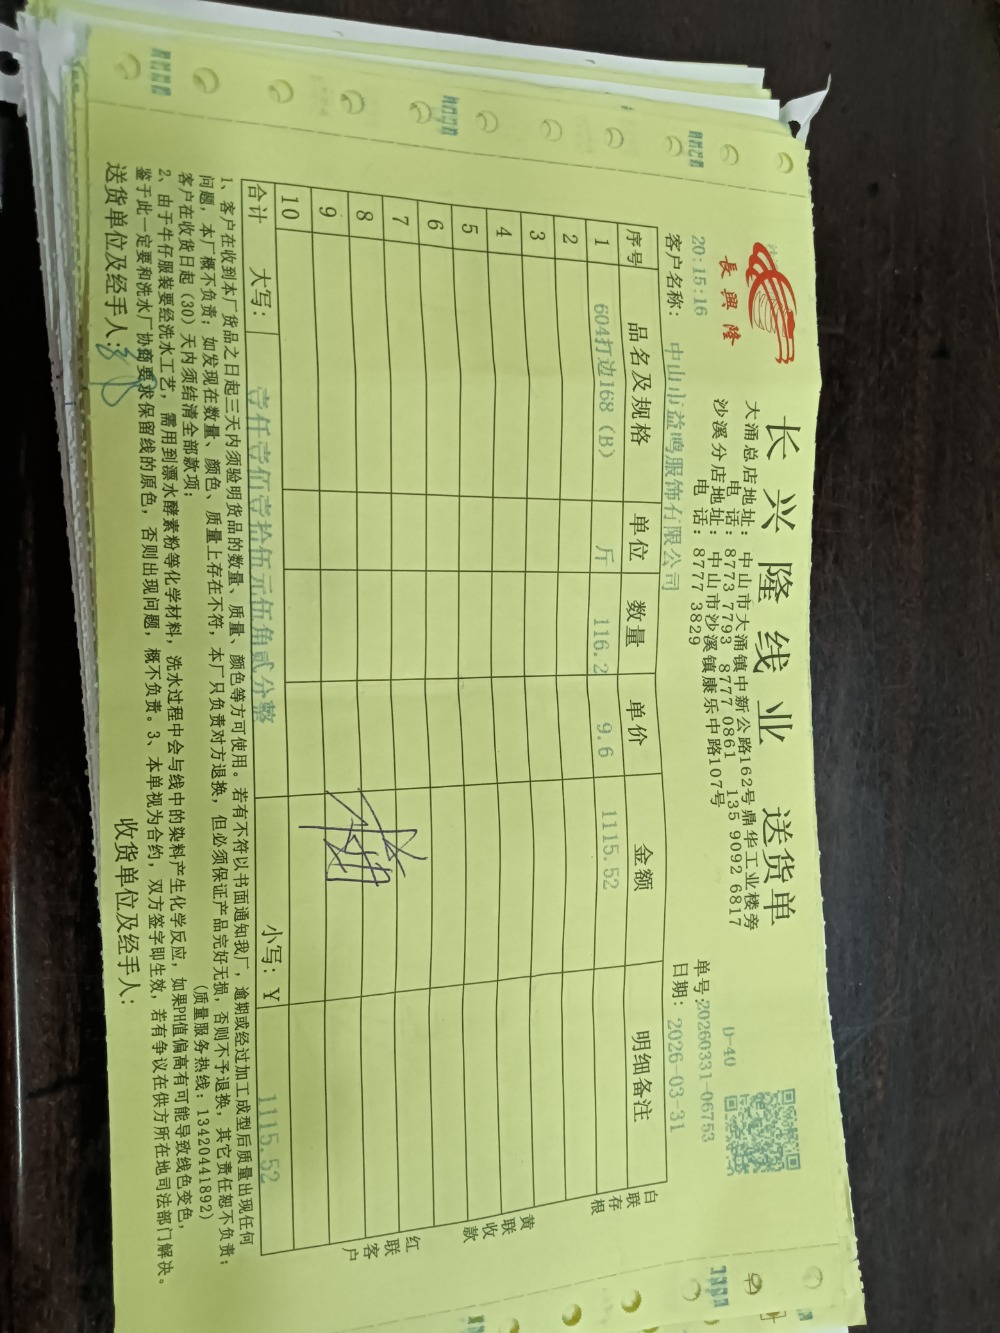 長興隆
长兴隆线业 送货单
大涌总店地址：中山市大涌镇中新公路162号鼎华工业楼旁
电话：8773 7793 8777 0861 135 9092 6817
沙溪分店地址：中山市沙溪镇康乐中路107号
电话：8777 3829
D-40
单号:20260331-06753
20:15:16
日期：2026-03-31
客户名称：中山市益鸣服饰有限公司
序号 品名及规格 单位 数量 单价 金额 明细备注
1 604打边168（B） 斤 116.2 9.6 1115.52
2
3
4
5
6
7
8
9
10
合计 大写：壹仟壹佰壹拾伍元伍角贰分整 小写：￥ 1115.52
白联存根
黄联收款
红联客户
1、客户在收到本厂货品之日起三天内须验明货品的数量、质量、颜色等方可使用。若有不符以书面通知我厂，逾期或经过加工成型后质量出现任何
问题，本厂概不负责；如发现在数量、颜色、质量上存在不符，本厂只负责对方退换，但必须保证产品完好无损，否则不予退换，其它责任恕不负责；
客户在收货日起（30）天内须结清全部款项； （质量服务热线：13420441892）
2、由于牛仔服装要经洗水工艺，需用到漂水酵素粉等化学材料，洗水过程中会与线中的染料产生化学反应，如果PH值偏高有可能导致线色变色，
鉴于此一定要和洗水厂协商要求保留线的原色，否则出现问题，概不负责。3、本单视为合约，双方签字即生效，若有争议在供方所在地司法部门解决。
送货单位及经手人： 收货单位及经手人：